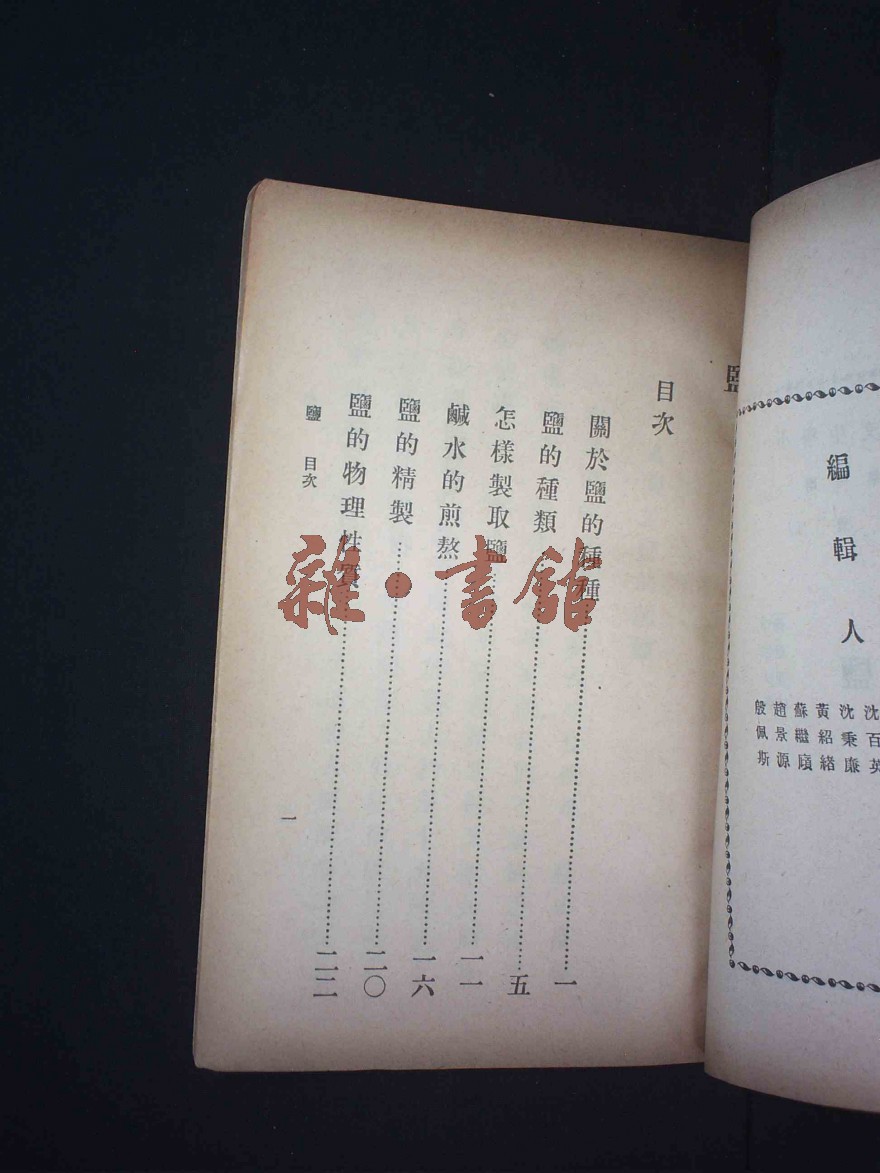 編輯人
沈百英
沈秉廉
黃紹緒
蘇繼廎
趙景源
殷佩斯
鹽
目次
關於鹽的種種……一
鹽的種類……五
怎樣製取鹽……一一
鹹水的煎熬……一六
鹽的精製……二〇
鹽的物理性質……二二
鹽 目次
一
雜·書館